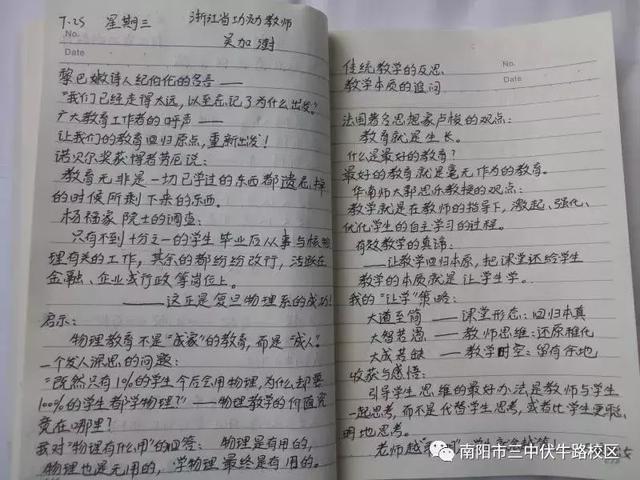 7.25 星期三 浙江省功勋教师
No.
Date
吴加澍
黎巴嫩诗人纪伯伦的名言——
"我们已经走得太远，以至忘记了为什么出发。"
广大教育工作者的呼声——
让我们的教育回归原点，重新出发！
诺贝尔奖获得者劳厄说：
教育无非是一切已学过的东西都遗忘掉
的时候所剩下来的东西。
杨福家院士的调查：
只有不到十分之一的学生毕业后从事与核物
理有关的工作，其余的都纷纷改行，活跃在
金融、企业或行政等岗位上。
——这正是复旦物理系的成功！
启示：
物理教育不是"成家"的教育，而是"成人"。
一个发人深思的问题：
"既然只有1%的学生今后会用物理，为什么却要
100%的学生都学物理？"——物理教学的价值究
竟在哪里？
我对"物理有什么用"的回答：物理是有用的，
物理也是无用的，学物理最终是有用的。
传统教学的反思
No.
教学本质的追问
Date
法国著名思想家卢梭的观点：
教育就是生长。
什么是最好的教育？
最好的教育就是毫无作为的教育。
华南师大郭思乐教授的观点：
教学就是在教师的指导下，激起、强化、
优化学生的自主学习的过程。
有效教学的真谛：
——让教学回归本原，把课堂还给学生
教学的本质就是让学生学。
我的"让学"策略：
大道至简——课堂形态：回归本真
大智若愚——教师思维：还原稚化
大成若缺——教学时空：留有余地
收获与感悟：
引导学生思维的最好办法是教师与学生
一起思考，而不是代替学生思考，或者比学生更聪
明地思考。
老师越
南阳市三中伏牛路校区